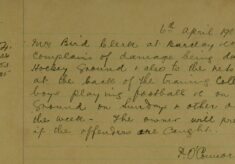 6th April 19
Mrs Bird Clerk at Barclay
complains of damage being do
Hockey Ground & also to the
at the back of the Training Coll
boys playing football it on
Ground on Sundays & other
the week - The owner will pr
if the offenders are caught.